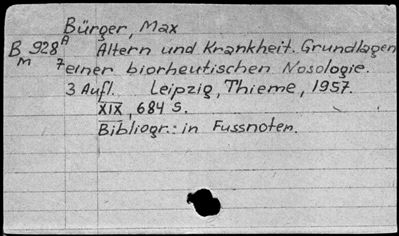 Bürger, Max
B 928 A Altern und Krankheit. Grundlagen
M 7 einer biorheutischen Nosologie.
3 Aufl. Leipzig, Thieme, 1957.
XIX, 684 S.
Bibliogr.: in Fussnoten.